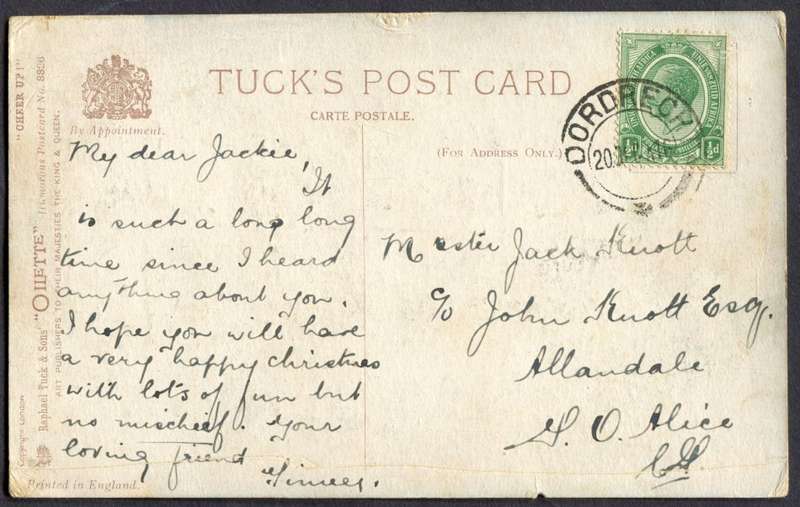 TUCK'S POST CARD
CARTE POSTALE.
By Appointment.
(FOR ADDRESS ONLY.)
DORDRECH
½d ½d
My dear Jackie,
It
is such a long long
time since I heard
anything about you.
I hope you will have
a very happy christmas
with lots of fun but
no mischief. Your
loving friend
Master Jack Knott
c/o John Knott Esq.
Allandale
P. O. Alice
Printed in England.
"CHEER UP!"
Raphael Tuck & Sons' "OILETTE" Humorous Postcard No. 8836
ART PUBLISHERS TO THEIR MAJESTIES THE KING & QUEEN.
Copyright London